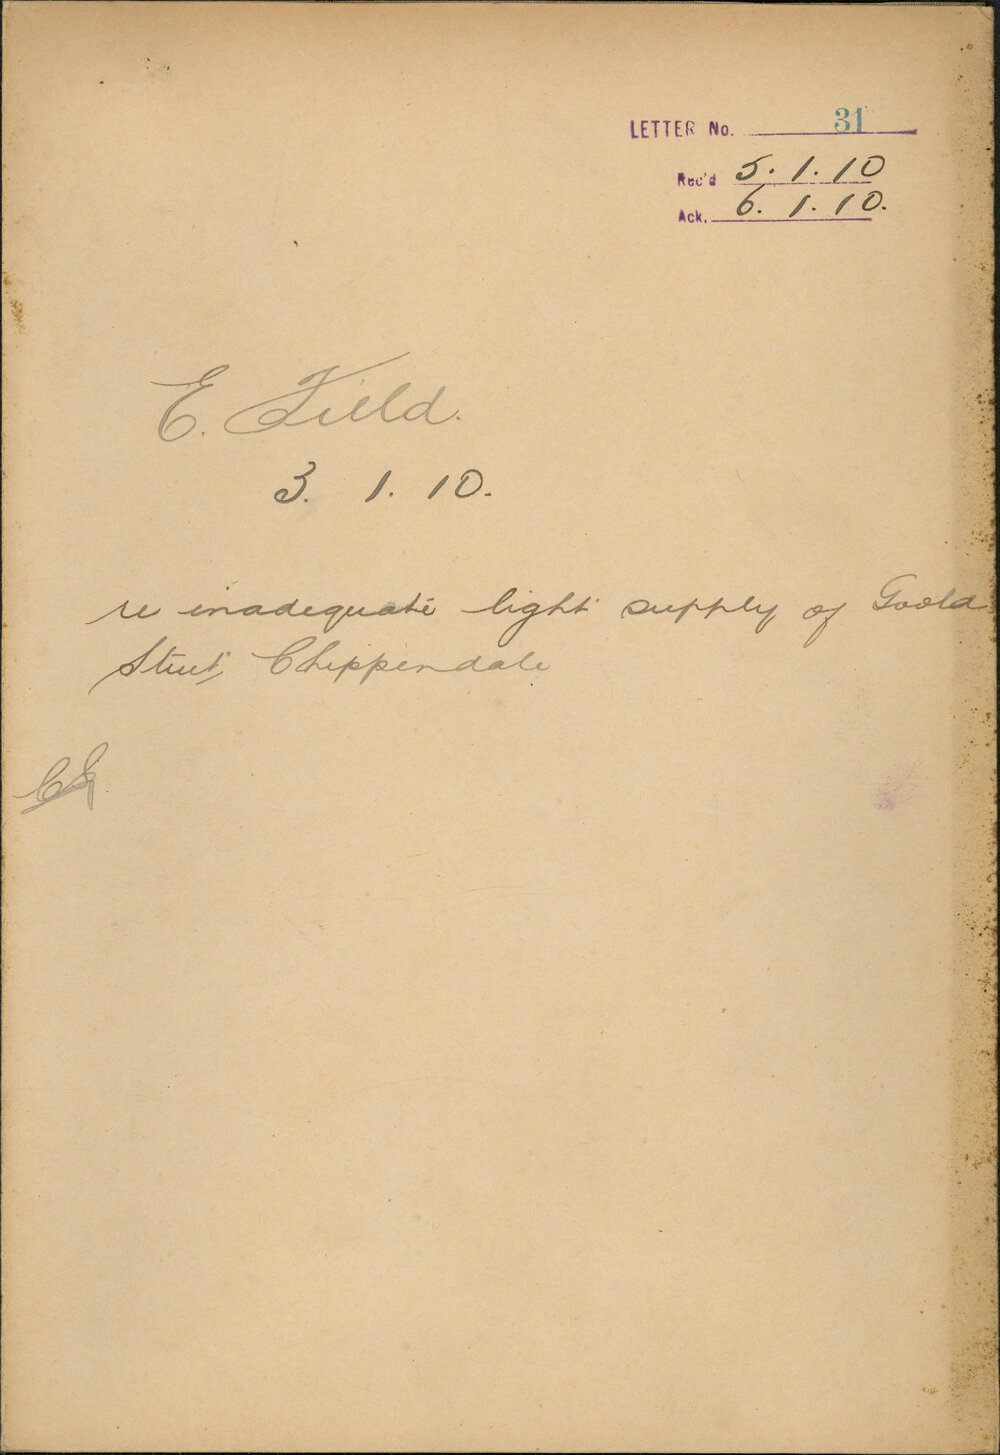 LETTER No. 31
Rec'd 5.1.10
Ack. 6.1.10.
E. Field.
3. 1. 10.
re inadequate light supply of Goold
Street, Chippendale